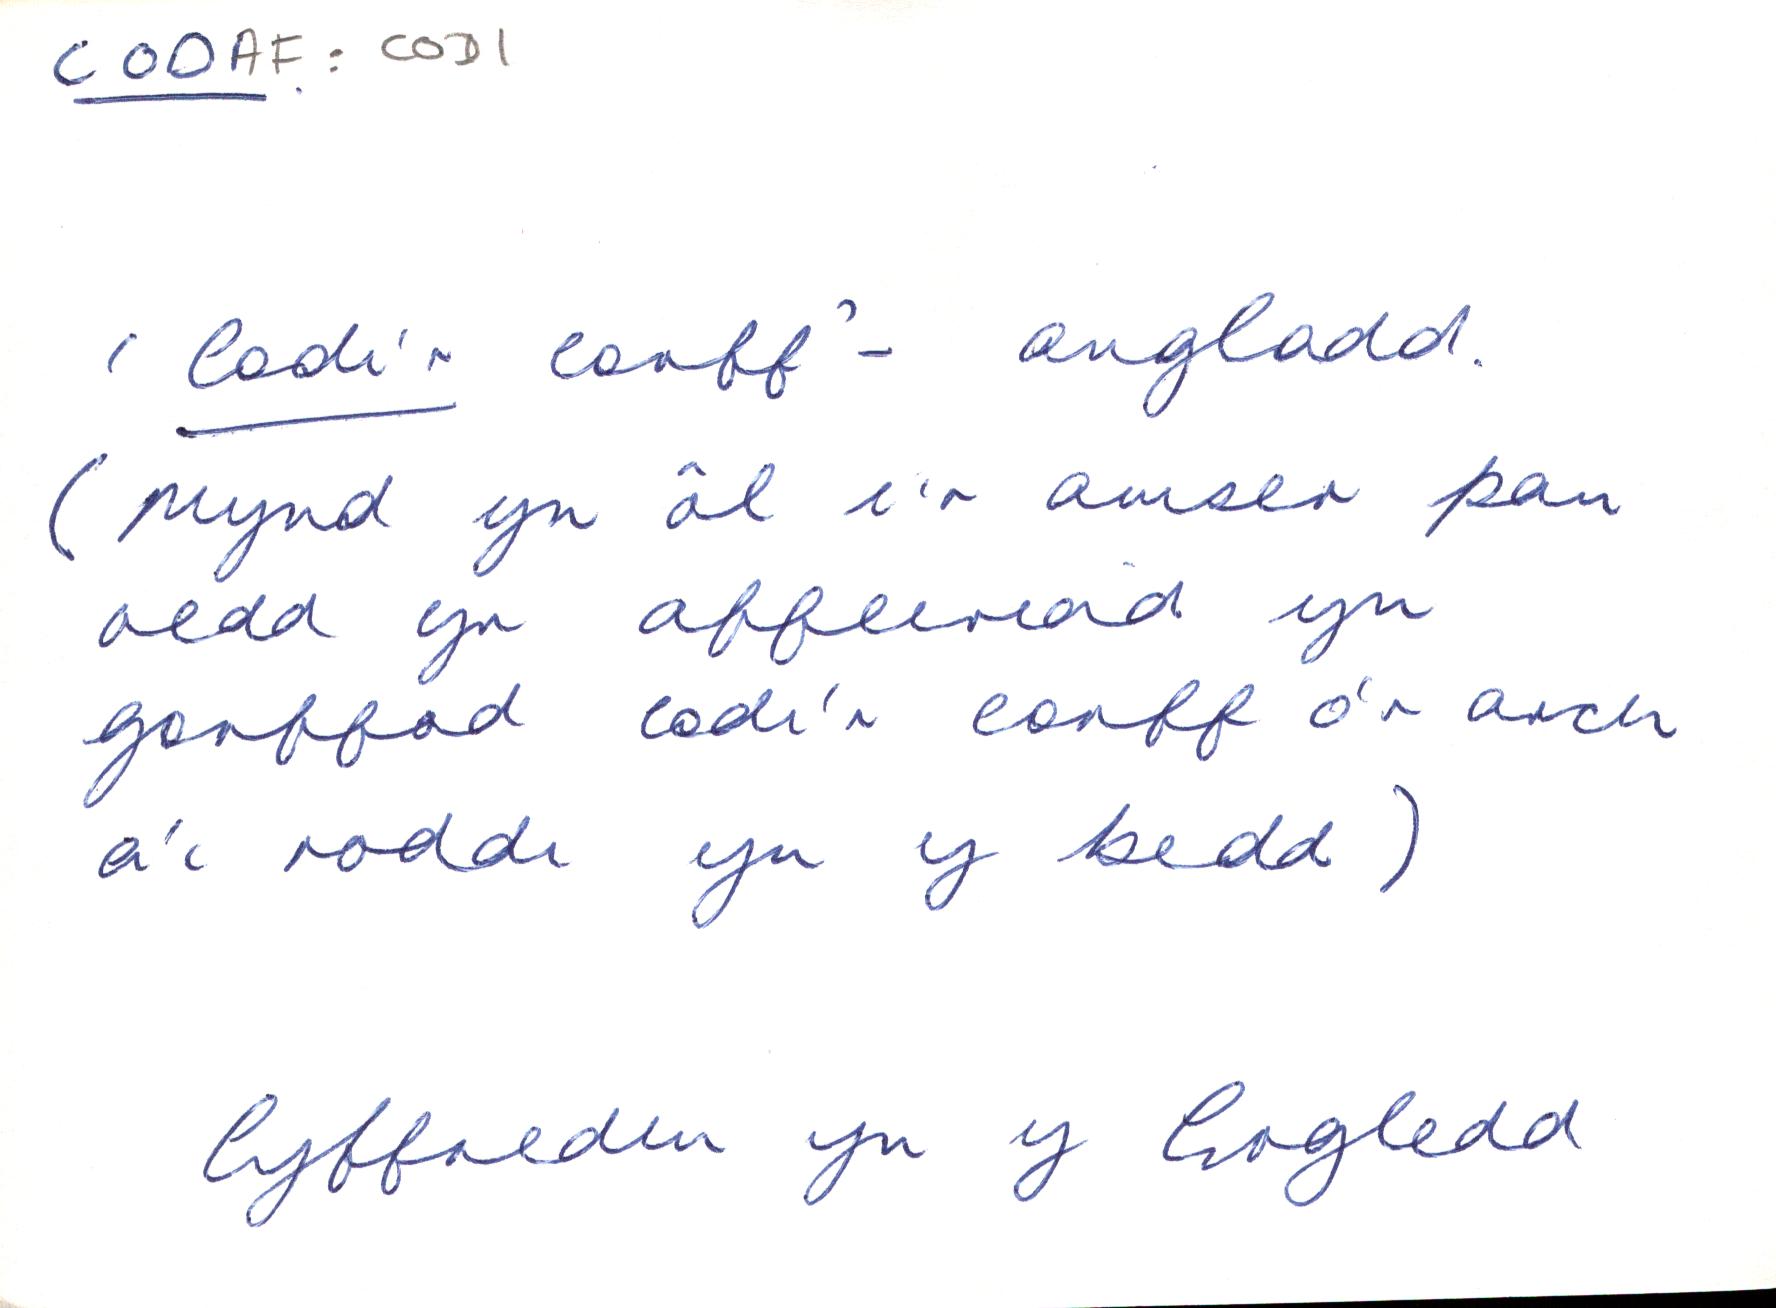 CODAF: CODI
'Codi'r corff' - angladd.
(Mynd yn ôl i'r amser pan
oedd yr offeiriad yn
gorffod codi'r corff o'r arch
a'i roddi yn y bedd)
Cyffredin yn y Gogledd